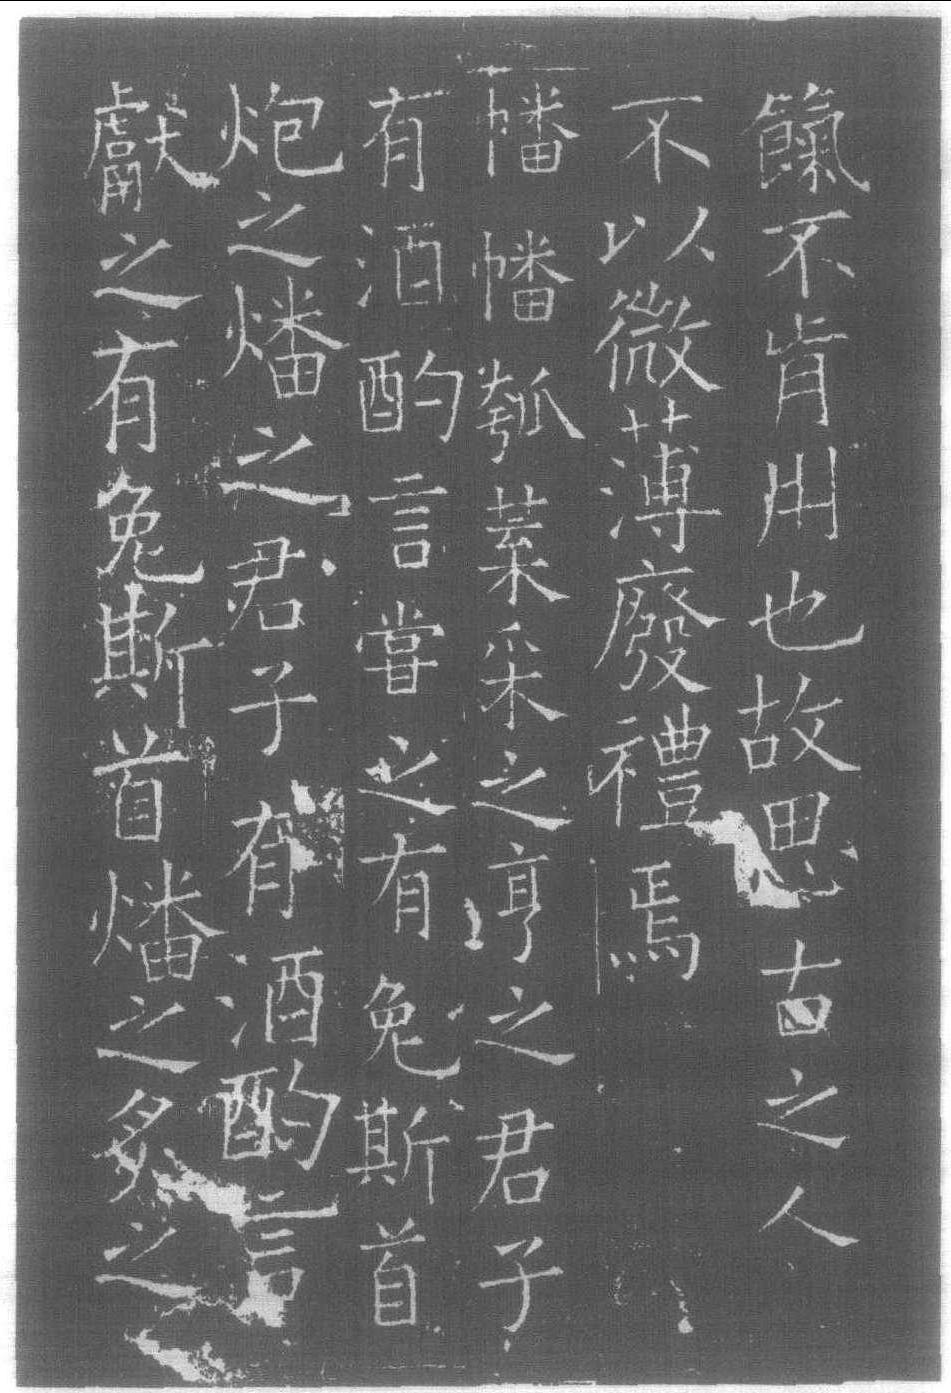 餼不肯用也故思古之人
不以微薄廢禮焉
幡幡瓠葉采之亨之君子
有酒酌言嘗之有兔斯首
炮之燔之君子有酒酌言
獻之有兔斯首燔之炙之